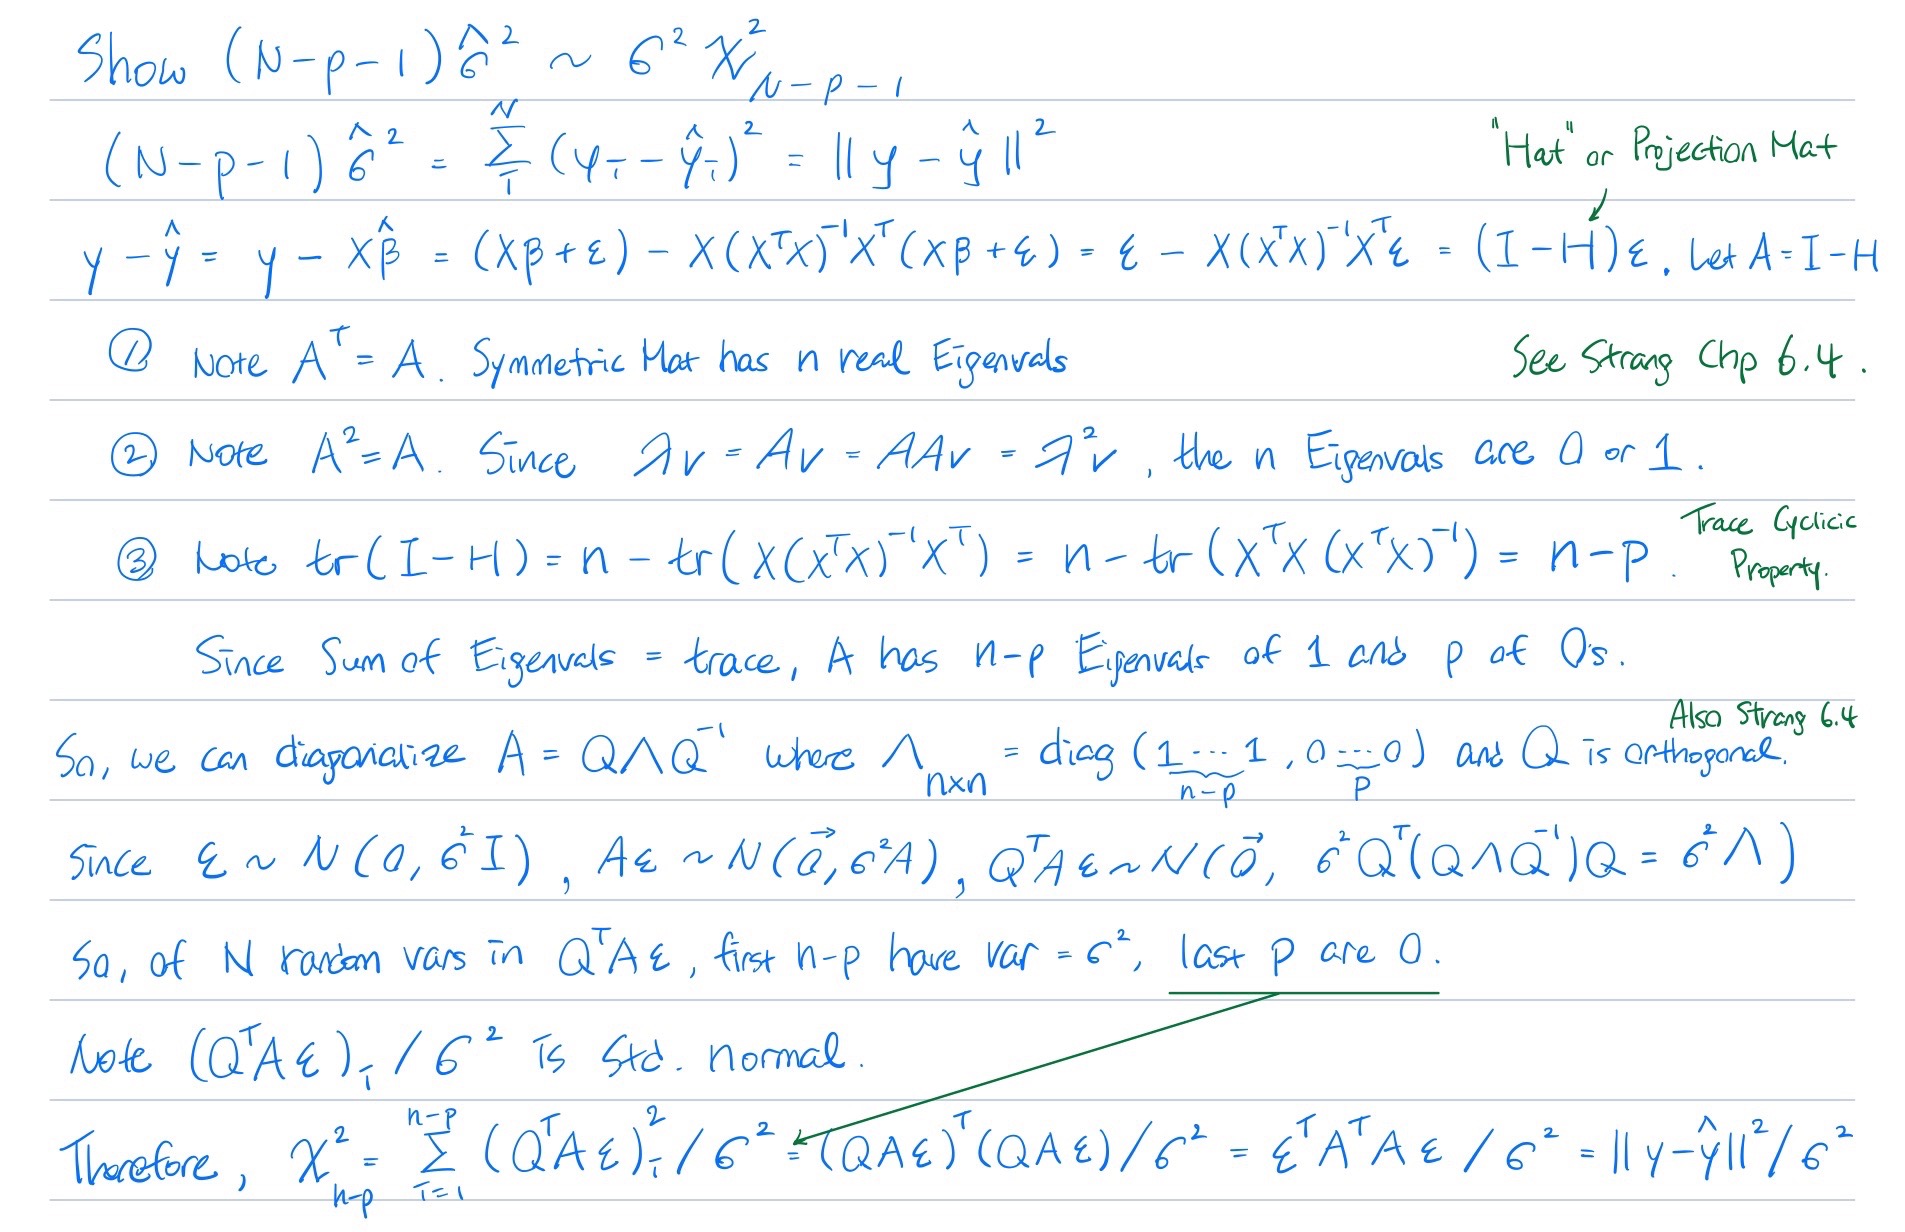 Show (N-p-1) σ̂² ~ σ² χ²_{N-p-1}
(N-p-1) σ̂² = Σ_i^N (y_i - ŷ_i)² = ||y - ŷ||²
"Hat" or Projection Mat
y - ŷ = y - Xβ̂ = (Xβ + ε) - X(XᵀX)⁻¹Xᵀ(Xβ + ε) = ε - X(XᵀX)⁻¹Xᵀε = (I - H)ε. Let A = I - H
① Note Aᵀ = A. Symmetric Mat has n real Eigenvals
See Strang Chp 6.4.
② Note A² = A. Since λv = Av = AAv = λ²v, the n Eigenvals are 0 or 1.
③ Note tr(I - H) = n - tr(X(XᵀX)⁻¹Xᵀ) = n - tr(XᵀX(XᵀX)⁻¹) = n-p.
Trace Cyclicic
Property.
Since Sum of Eigenvals = trace, A has n-p Eigenvals of 1 and p of 0s.
Also Strang 6.4
So, we can diagonalize A = QΛQ⁻¹ where Λ_{n×n} = diag(1 ... 1, 0 ... 0) and Q is orthogonal.
n-p p
Since ε ~ N(0, σ²I), Aε ~ N(0⃗, σ²A), QᵀAε ~ N(0⃗, σ²Qᵀ(QΛQ⁻¹)Q = σ²Λ)
So, of N random vars in QᵀAε, first n-p have var = σ², last p are 0.
Note (QᵀAε)_i / σ² is std. normal.
Therefore, χ²_{n-p} = Σ_{i=1}^{n-p} (QᵀAε)_i² / σ² = (QAε)ᵀ(QAε) / σ² = εᵀAᵀAε / σ² = ||y - ŷ||² / σ²